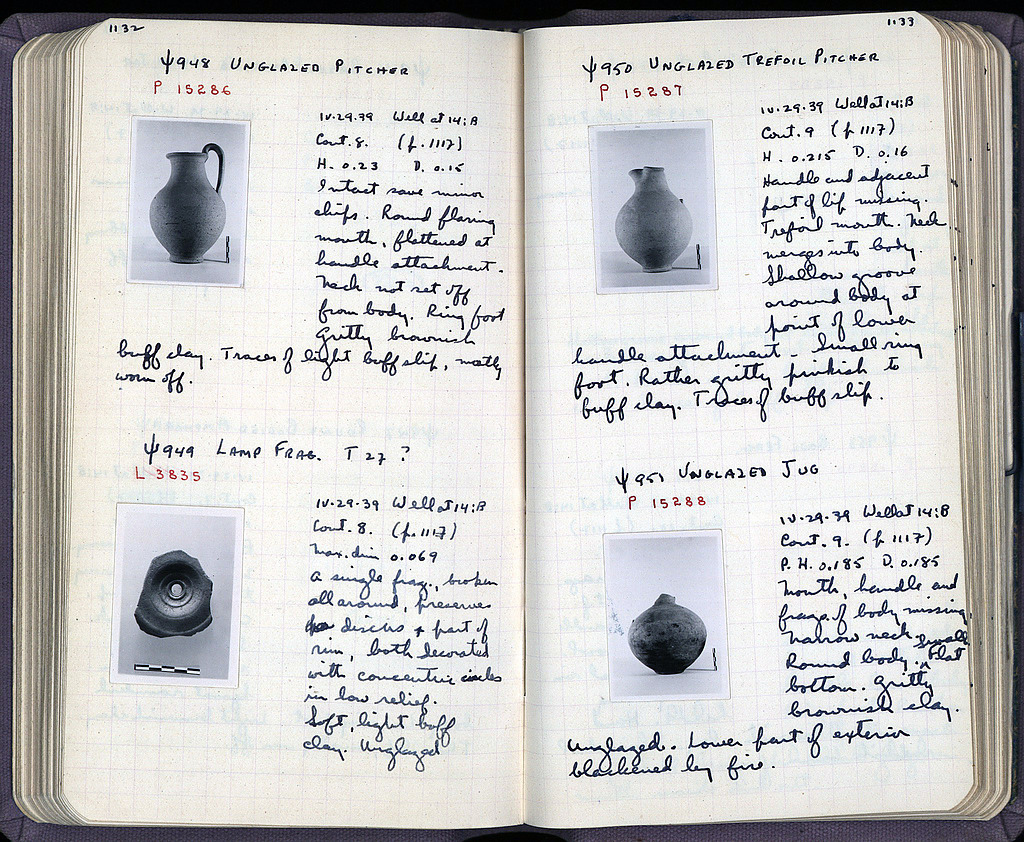 1132
Ψ948 UNGLAZED PITCHER
P 15286
IV.29.39 Well at 14:B
Cont. 8. (p. 1117)
H. 0.23 D. 0.15
Intact save minor
chips. Round flaring
mouth, flattened at
handle attachment.
Neck not set off
from body. Ring foot
Gritty brownish
buff clay. Traces of light buff slip, mostly
worn off.
Ψ949 LAMP FRAG. T 27 ?
L 3835
IV.29.39 Well at 14:B
Cont. 8. (p. 1117)
Max. dim 0.069
A single frag., broken
all around, preserves
discus + part of
rim, both decorated
with concentric circles
in low relief.
Soft, light buff
clay. Unglazed
1133
Ψ950 UNGLAZED TREFOIL PITCHER
P 15287
IV.29.39 Well at 14:B
Cont. 9 (p. 1117)
H. 0.215 D. 0.16
Handle and adjacent
part of lip missing.
Trefoil mouth. Neck
merges into body.
Shallow groove
around body at
point of lower
handle attachment. Small ring
foot. Rather gritty pinkish to
buff clay. Traces of buff slip.
Ψ951 UNGLAZED JUG
P 15288
IV.29.39 Well at 14:B
Cont. 9. (p. 1117)
P. H. 0.185 D. 0.185
Mouth, handle and
frags. of body missing.
Narrow neck
Round body. Small flat
bottom. Gritty
brownish clay.
Unglazed. Lower part of exterior
blackened by fire.